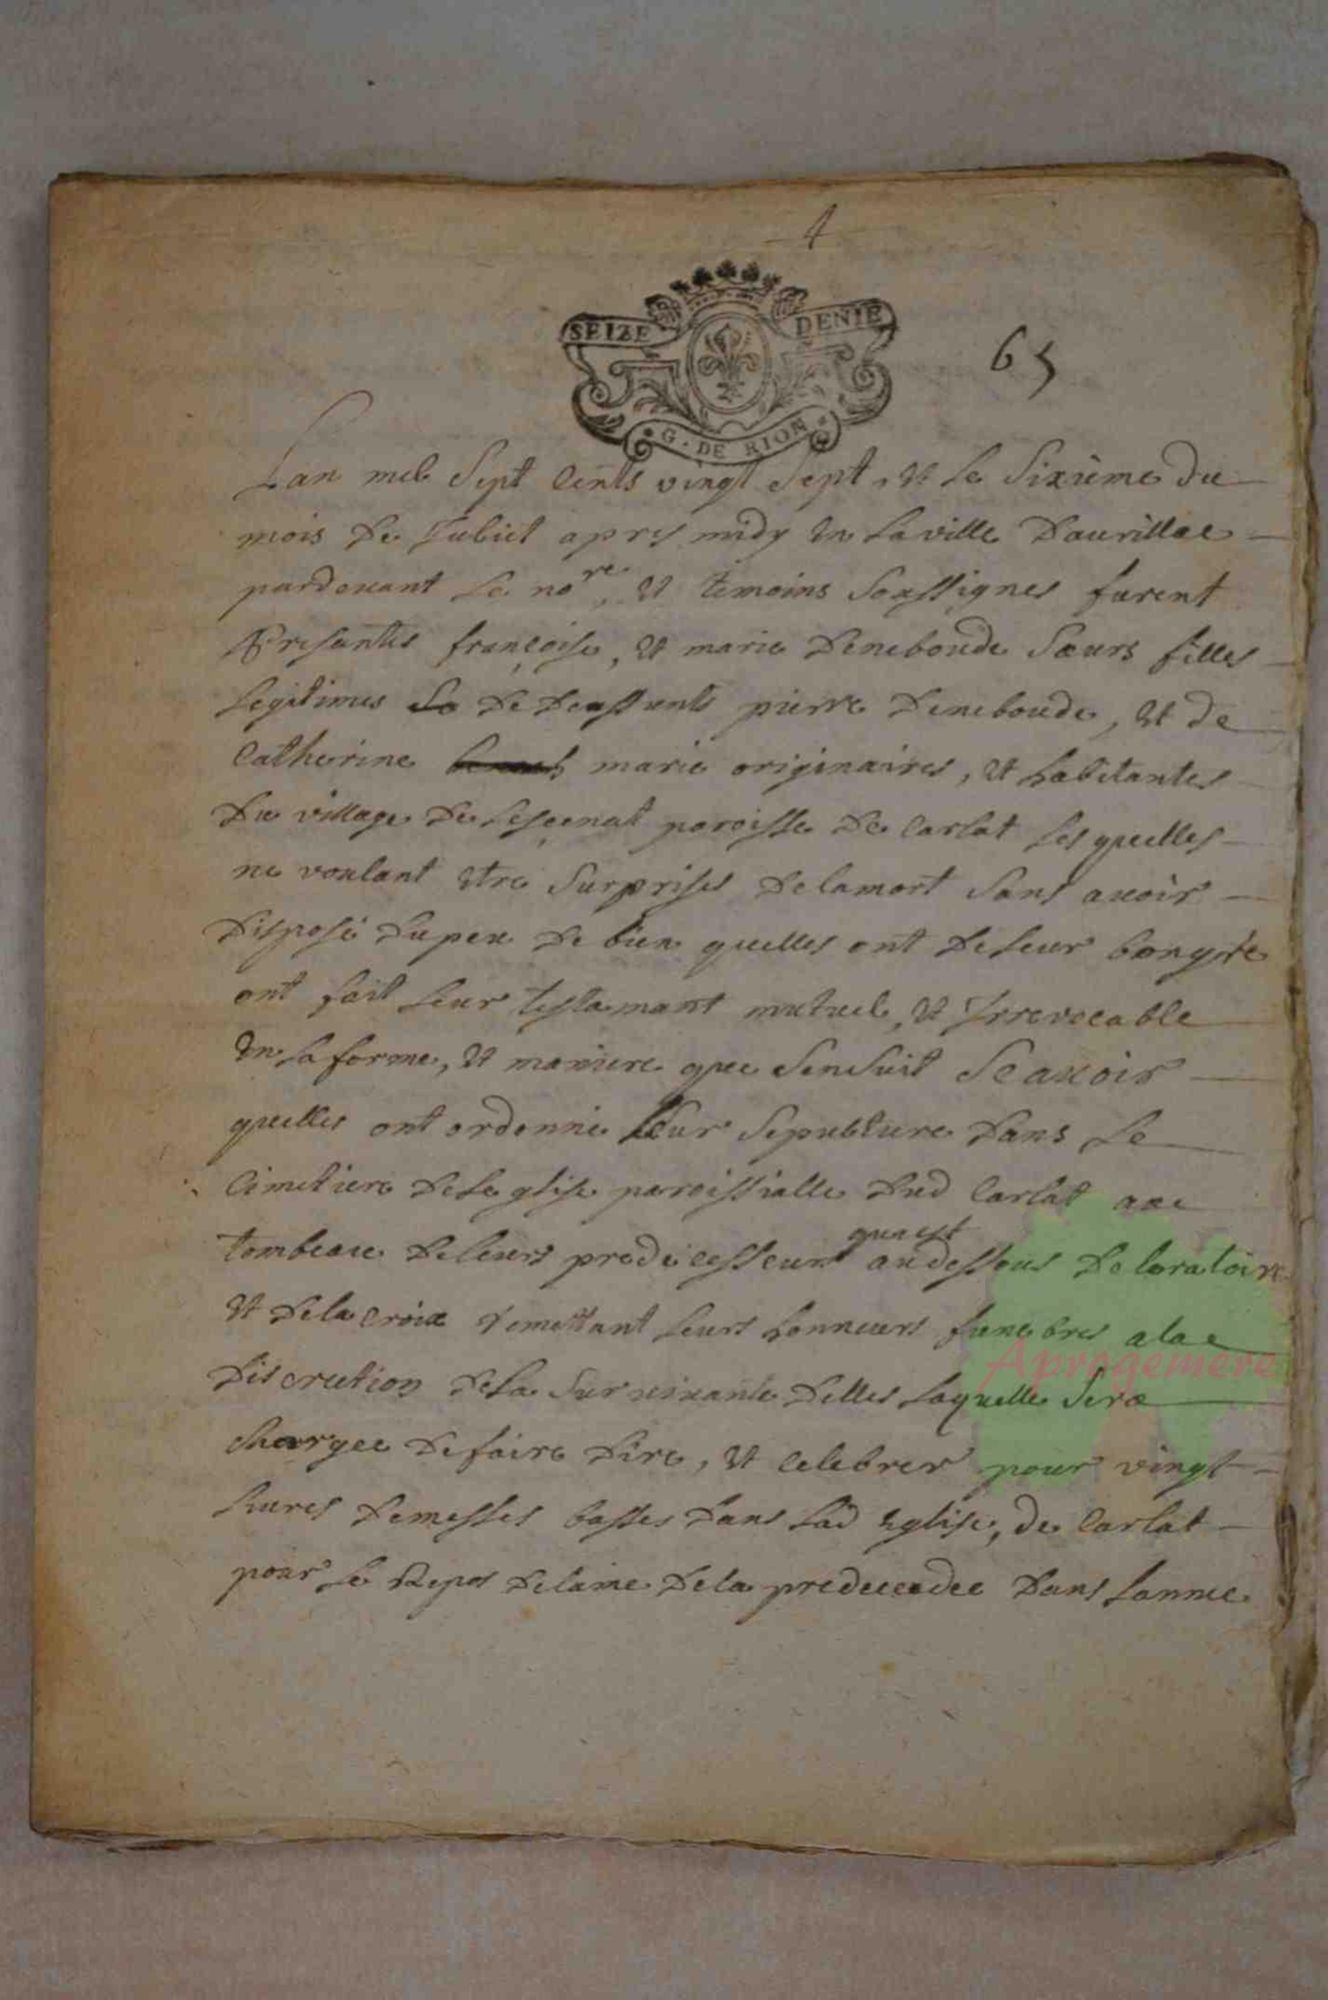 4
SEIZE DENIE
G. DE RION
65
Lan mil Sept Cents vingt Sept, et le Sixieme du
mois de Juliet apres midy en la ville Daurillac
pardevant le no.re, et temoins Soussignes furent
Presantes françoise, et marie Deneboude Sœurs filles
legitimes de Deffunts pierre Deneboude, et de
Catherine marie originaires, et habitantes
Du village de Lesçenat paroisse de Carlat lesquelles
ne voulant etre Surprises delamort Sans avoir
Disposé Dupeu de bien quelles ont deleur bongré
ont fait leur testamant mutuel, et Irrevocable
en la forme, et maniere que Sensuit Scavoir
quelles ont ordonné leur Sepulture dans le
Cimetiere deleglise paroissialle dud Carlat au
tombeau deleurs predecesseurs quiest audessous deloratoire
et dela croix remettant leurs honneurs funebres ala
Discretion dela Survivante delles laquelle Sera
Chargee de faire dire, et celebrer pour vingt
livres demesses basses dans lad Eglise, de Carlat
pour le Repos delame dela predecedee dans lannee
Aprogemere